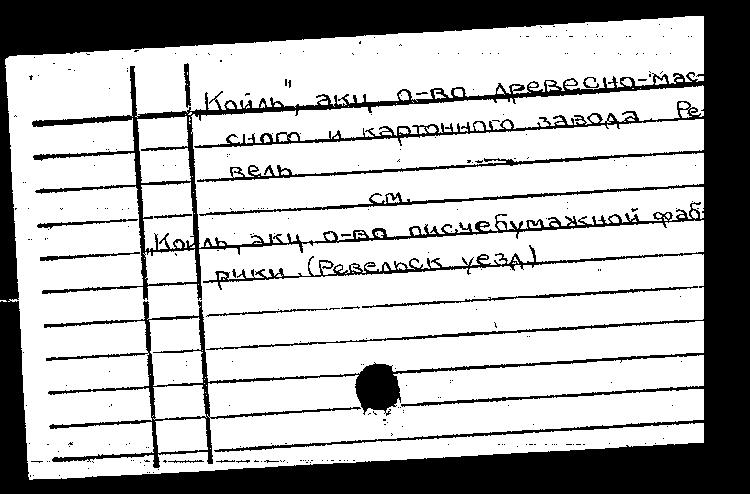 „Койль", акц о-во древесно-мас-
сного и картонного завода. Ре-
вель
см.
„Койль, акц. о-во писчебумажной фаб-
рики. (Ревельск уезд)